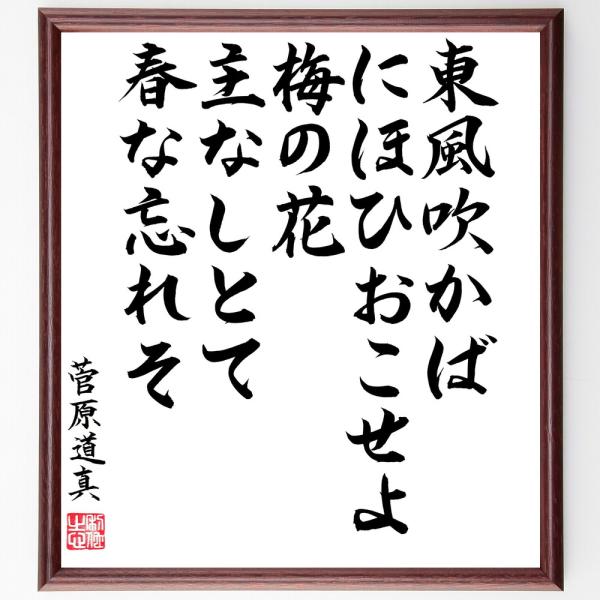 東風吹かば
にほひおこせよ
梅の花
主なしとて
春な忘れそ
菅原道真